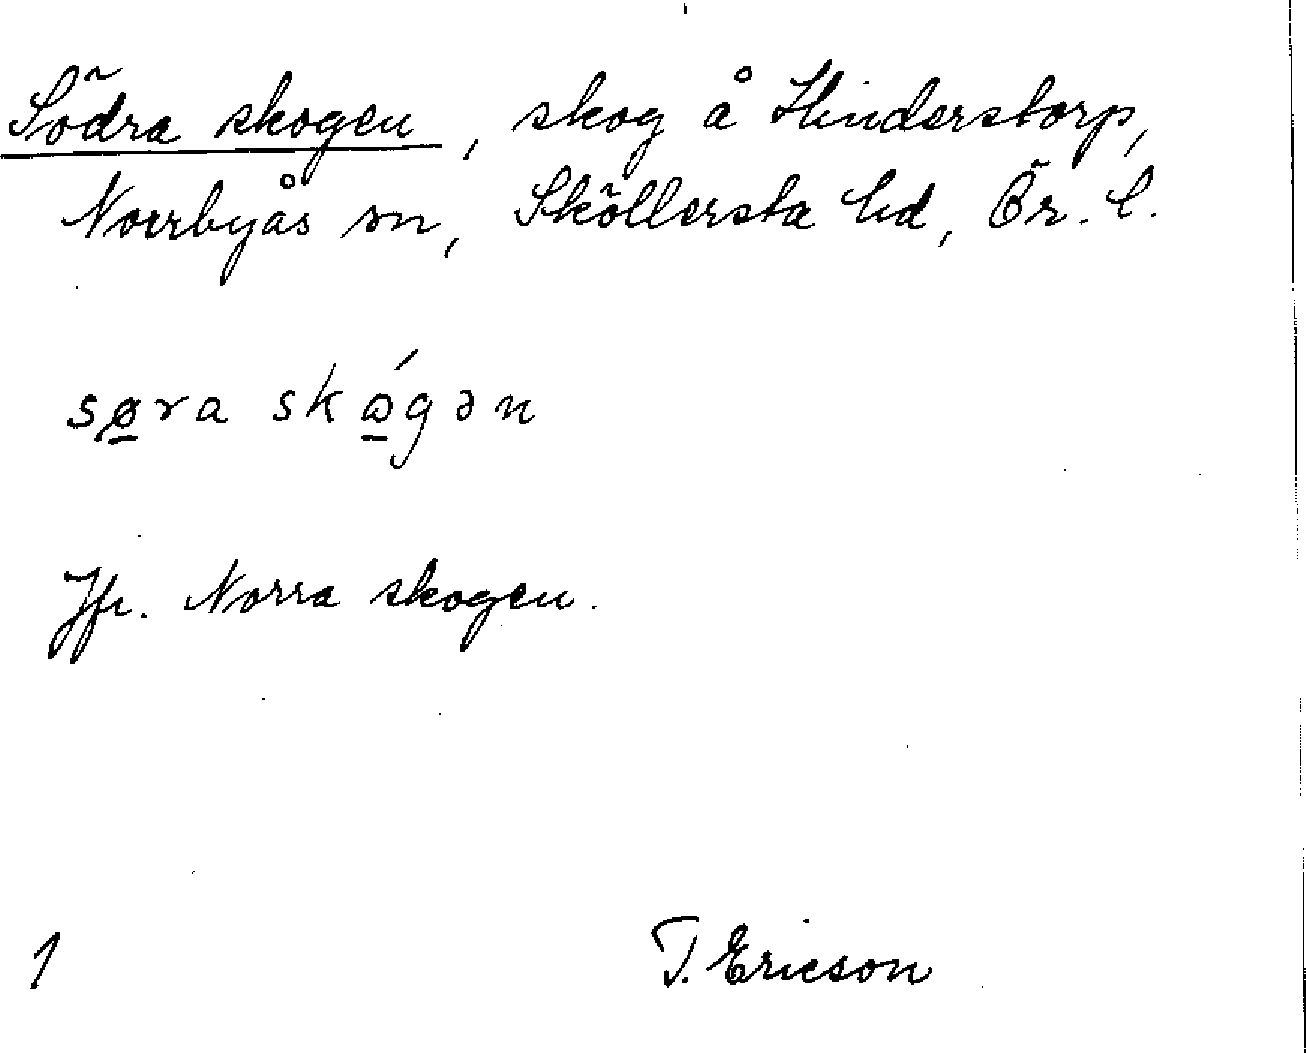 Södra skogen, skog å Hinderstorp,
Norrbyås sn, Sköllersta hd, Ör. l.
sø̱ra skώ̱gən
Jfr. Norra skogen.
1
T. Ericson